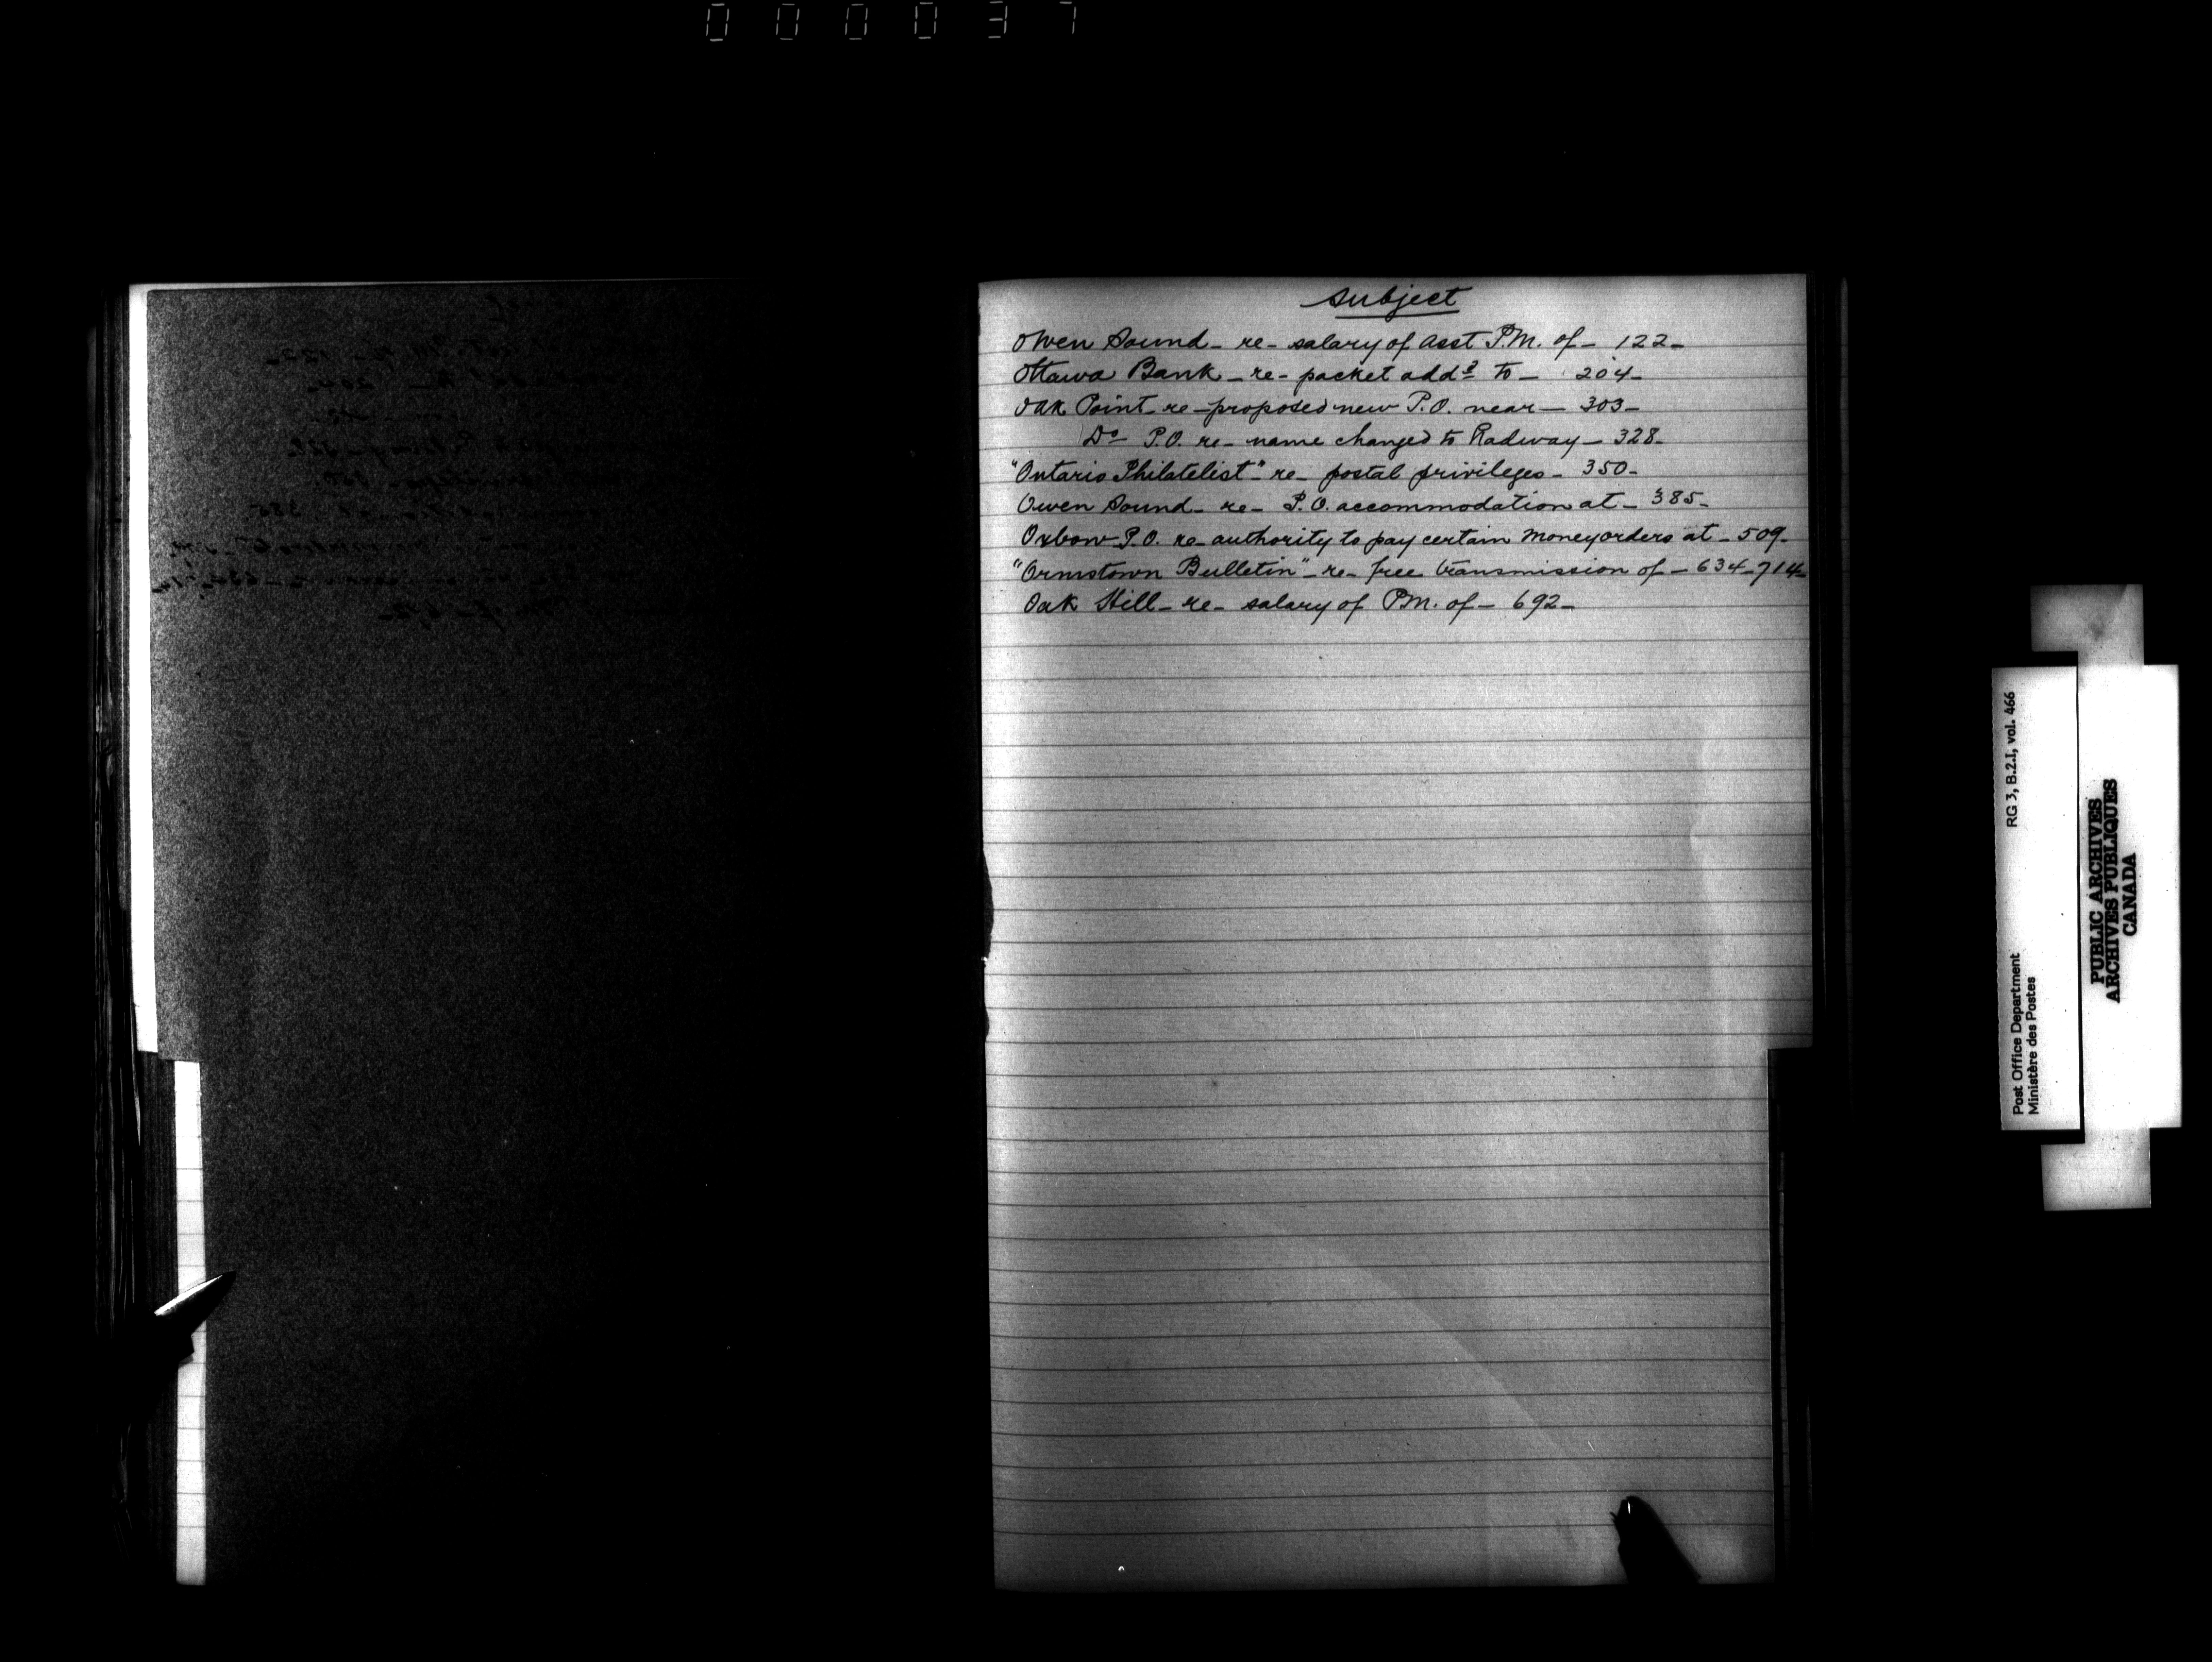 000037
Subject
Owen Sound - re - salary of Asst P.M. of - 122 -
Ottawa Bank - re - packet addd to - 204 -
Oak Point - re - proposed new P.O. near - 303 -
Do - P.O. re - name changed to Radway - 328 -
"Ontario Philatelist" - re - postal privileges - 350 -
Owen Sound - re - P.O. accommodation at - 385 -
Oxbow P.O. re - authority to pay certain money orders at - 509 -
"Ormstown Bulletin" - re - free transmission of - 634 - 714 -
Oak Hill - re - salary of P.M. of - 692 -
Post Office Department RG 3, B.2.1, vol. 466
Ministère des Postes
PUBLIC ARCHIVES
ARCHIVES PUBLIQUES
CANADA